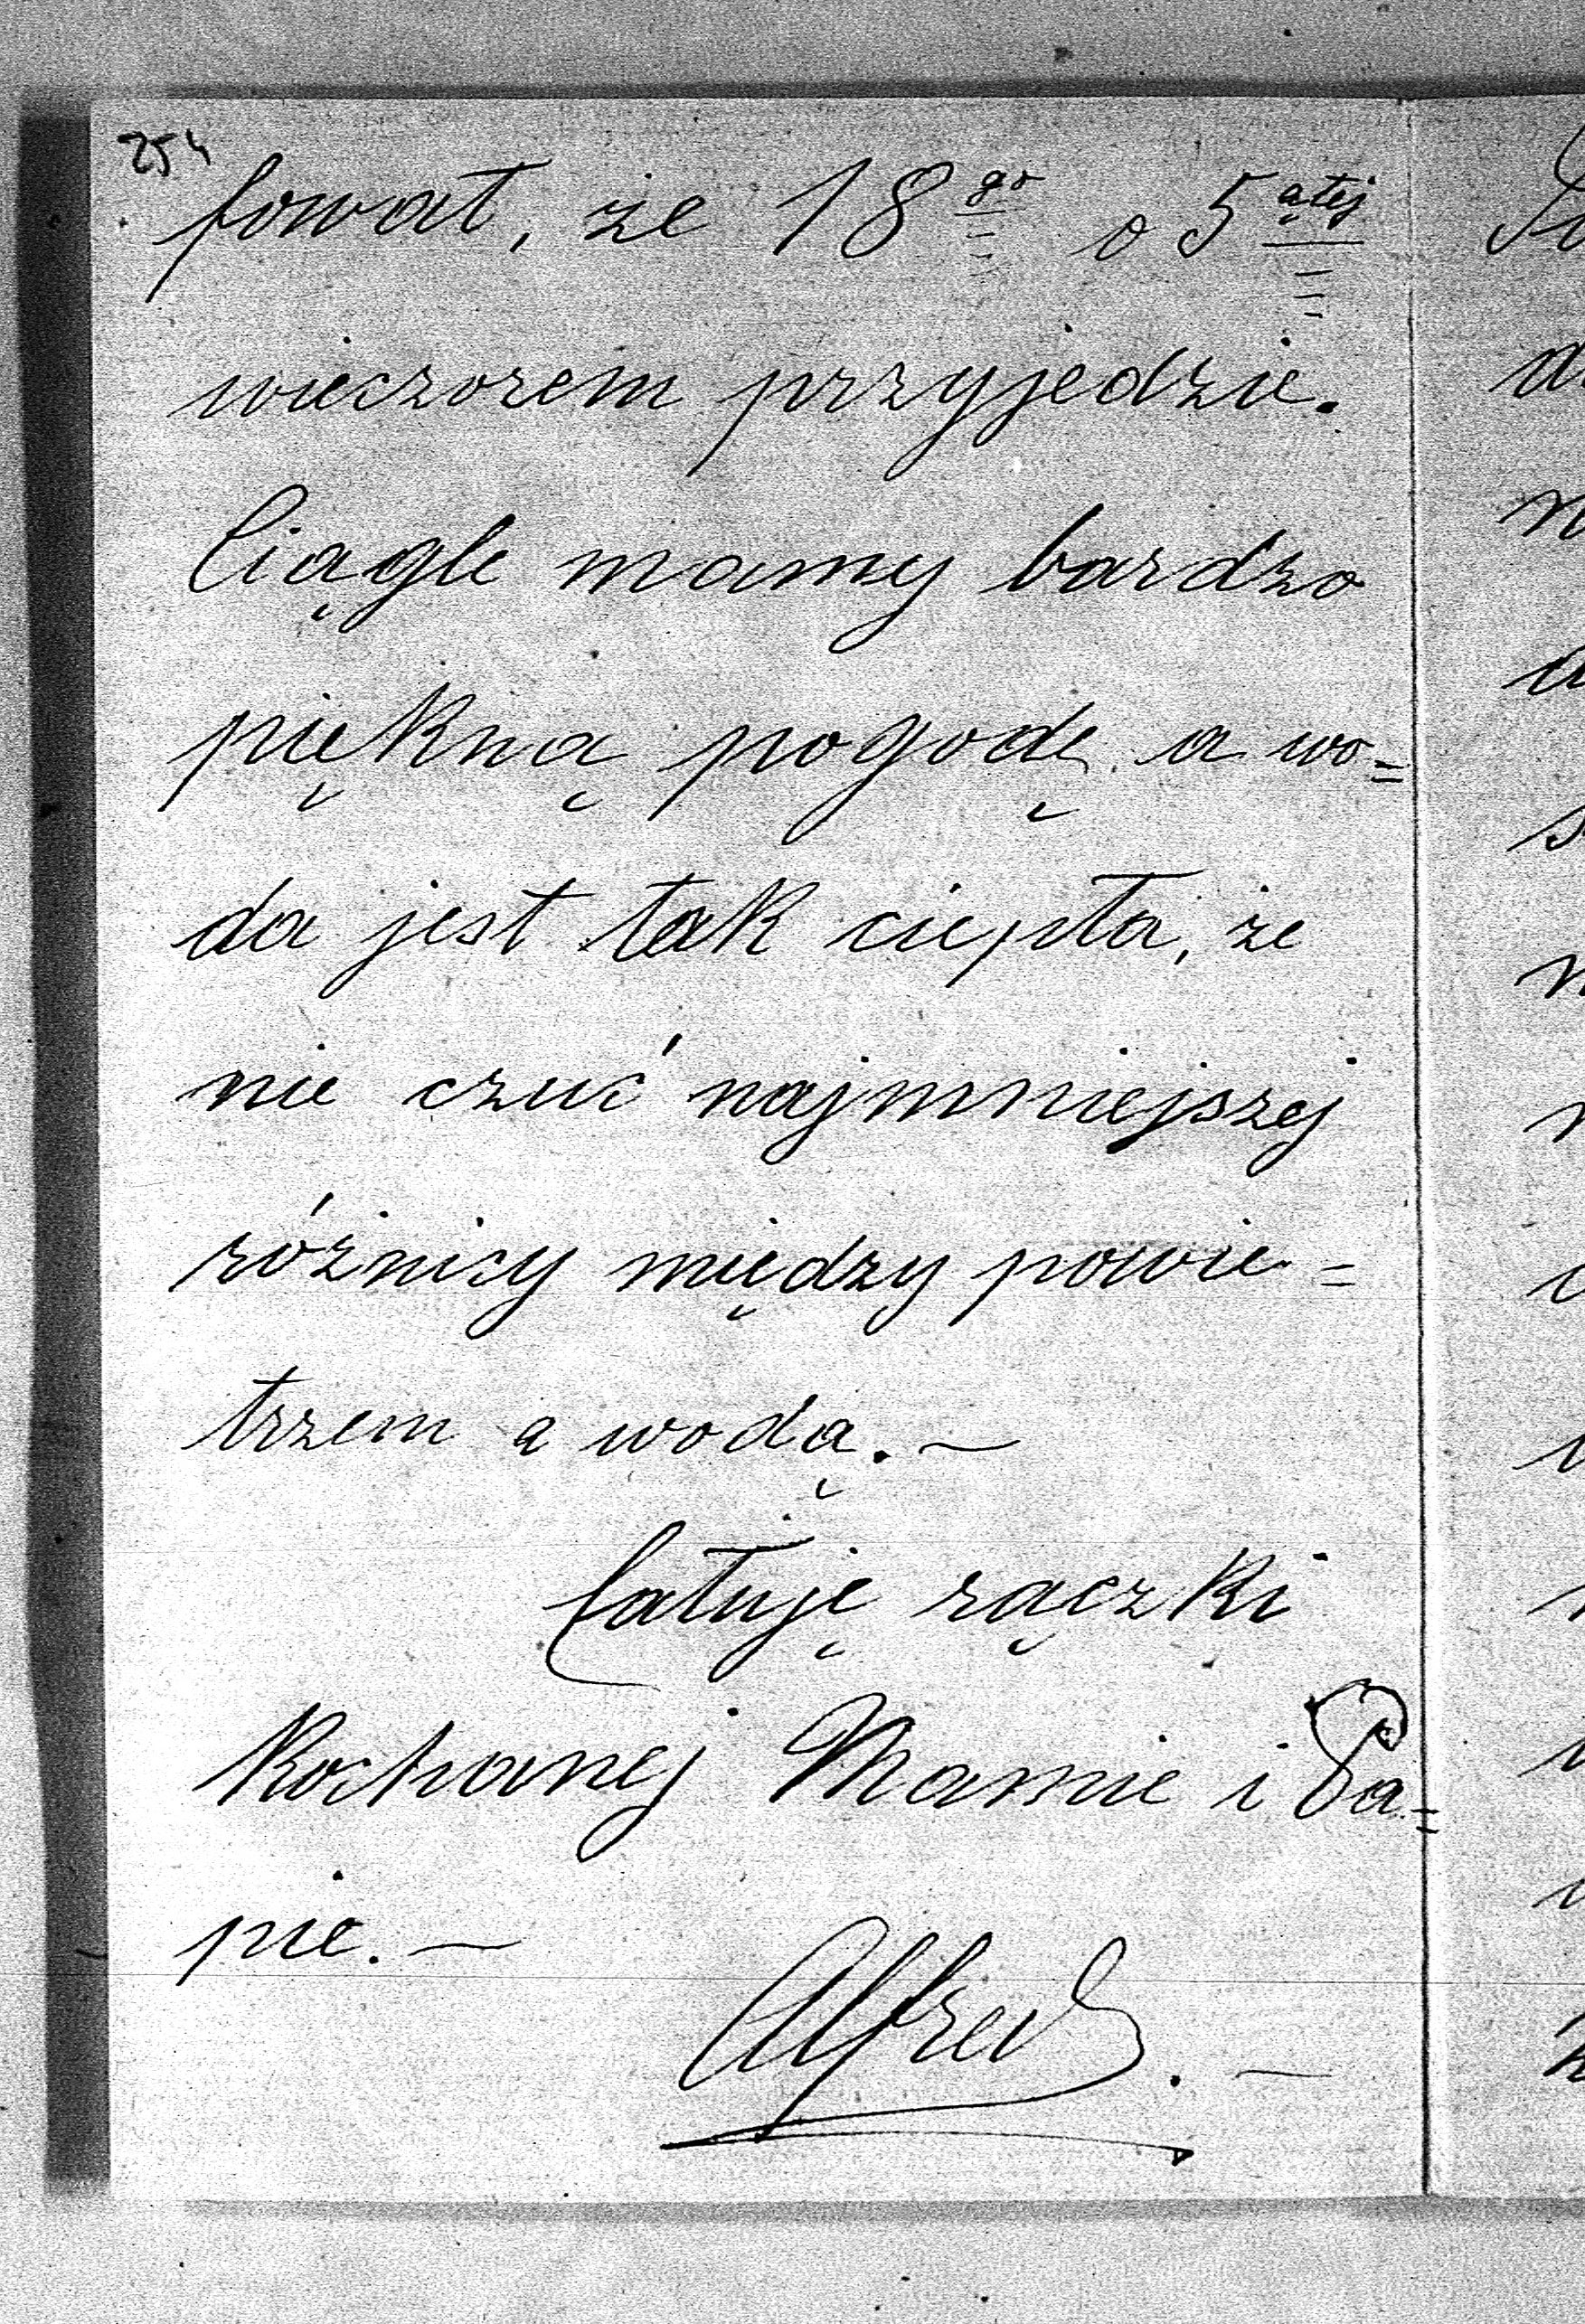 254
fował, że 18go o 5atej
wieczorem przyjedzie.
Ciągle mamy bardzo
piękną pogodę a wo=
da jest tak ciepła, że
nie czuć najmniejszej
różnicy między powie=
trzem a wodą. —
Całuję rączki
Kochanej Mamie i Pa=
pie. —
Alfred. —